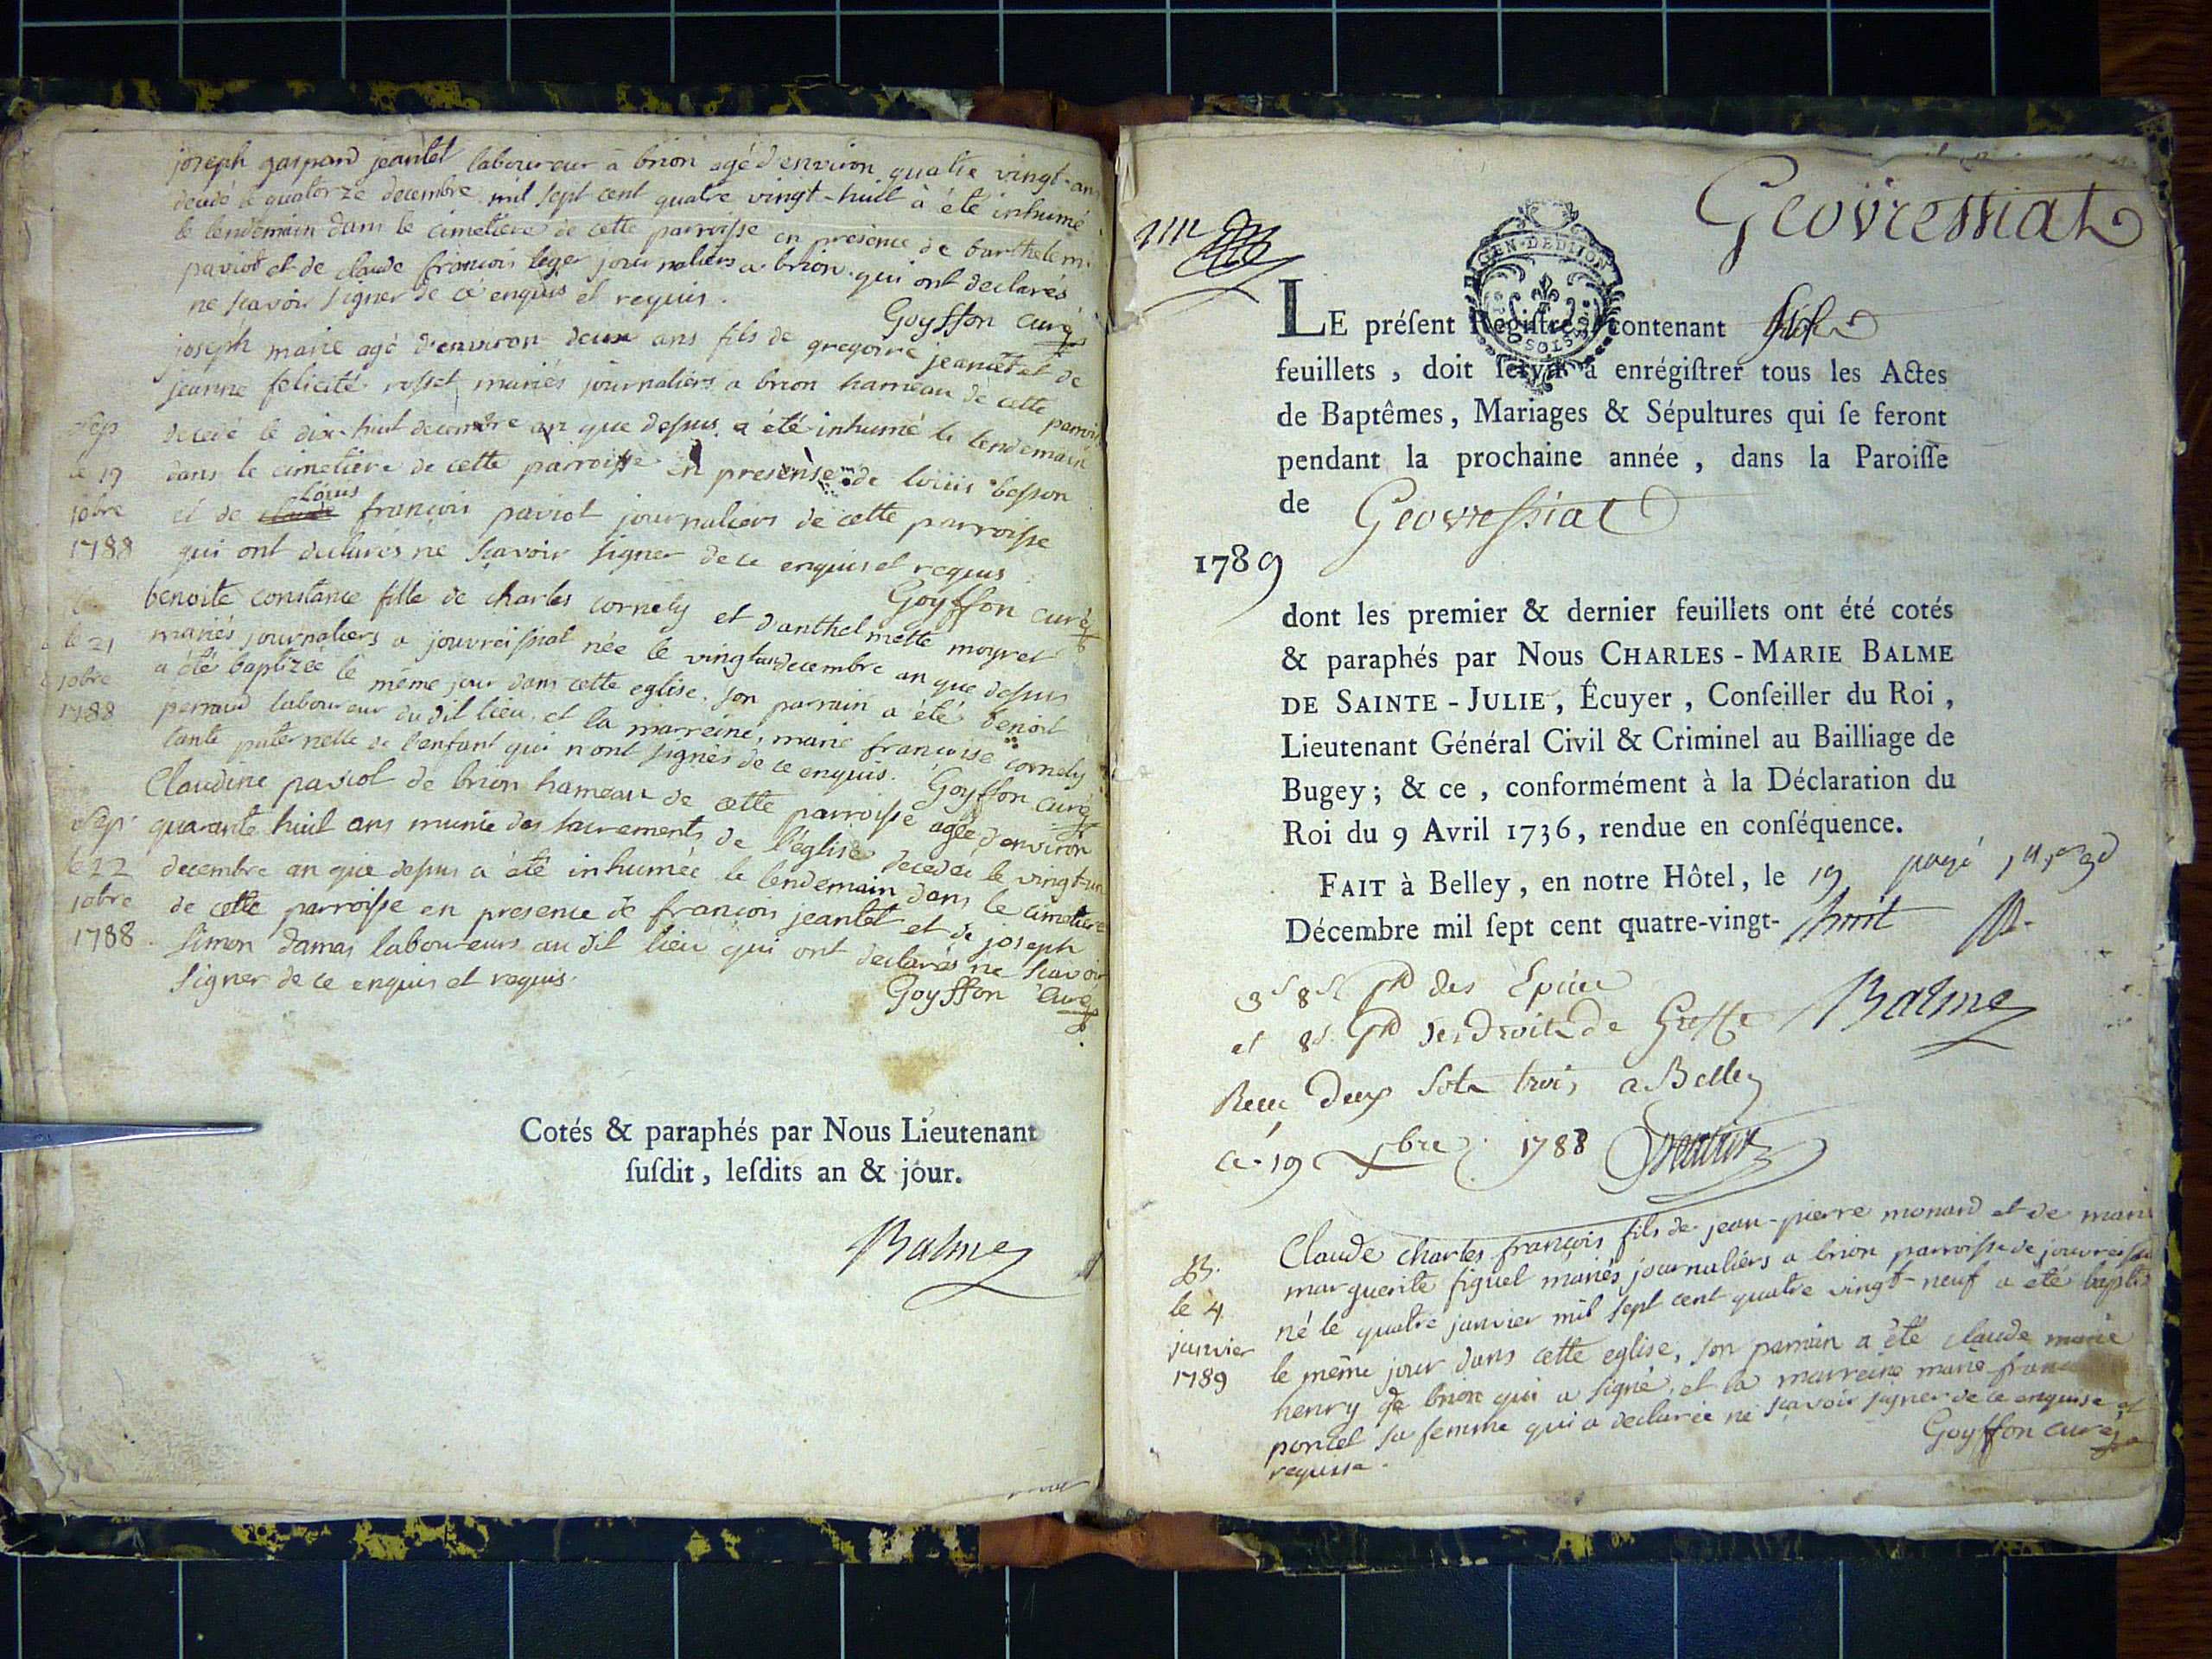 joseph gaspard jeantet laboureur a brion agé d'environ quatre vingt-ans
decedé le quatorze decembre mil sept cent quatre vingt-huit à été inhumé
le lendemain dans le cimetiere de cette parroisse en presence de barthelemi
paviot et de claude françois leger journaliers a brion qui ont declarés
ne scavoir signer de ce enquis et requis.
Goyffon curé
joseph marie agé d'environ deux ans fils de gregoire jeantet et de
jeanne felicité rosset mariés journaliers a brion hameau de cette parroisse
Sep
le 19
10bre
1788
decedé le dix-huit decembre an que dessus a été inhumé le lendemain
dans le cimetiere de cette parroisse en presense de louis besson
et de louis françois paviot journaliers de cette parroisse
qui ont declarés ne scavoir signer de ce enquis et requis
Goyffon curé
le 21
10bre
1788
benoite constance fille de charles cornely et d'anthelmette moyret
mariés journaliers a jouvreissiat née le vingt un decembre an que dessus
a été baptizée le même jour dans cette eglise. son parrain a été benoit
perraud laboureur du dit lieu, et la marreine, marie françoise cornely
tante paternelle de l'enfant qui n'ont signés de ce enquis.
Goyffon curé
Sep.
le 22
10bre
1788
Claudine paviot de brion hameau de cette parroisse agée d'environ
quarante huit ans munie des sacrements de l'église decedée le vingt-un
decembre an que dessus a été inhumée le lendemain dans le cimetiere
de cette parroisse en presence de françois jeantet et de joseph
simon damas laboureurs au dit lieu qui ont declarés ne scavoir
signer de ce enquis et requis.
Goyffon curé
Cotés & paraphés par Nous Lieutenant
ſuſdit, leſdits an & jour.
Balme
Geovressiat
GEN. DE DIJON
LE préſent Regiſtre contenant
feuillets, doit ſervir à enrégiſtrer tous les Actes
de Baptêmes, Mariages & Sépultures qui ſe feront
pendant la prochaine année, dans la Paroiſſe
de Geovressiat
1789
dont les premier & dernier feuillets ont été cotés
& paraphés par Nous CHARLES-MARIE BALME
DE SAINTE-JULIE, Écuyer, Conſeiller du Roi,
Lieutenant Général Civil & Criminel au Bailliage de
Bugey; & ce, conformément à la Déclaration du
Roi du 9 Avril 1736, rendue en conſéquence.
FAIT à Belley, en notre Hôtel, le 19
Décembre mil ſept cent quatre-vingt-huit
des Epices
et 8s. des Droits de Greffe
Balme
Receu deux sols trois a Belley
le 19 Xbre 1788
B.
le 4
janvier
1789
Claude charles françois fils de jean-pierre monard et de marie
marguerite figuet mariés journaliers a brion parroisse de jouvreissia
né le quatre janvier mil sept cent quatre vingt-neuf a été baptis
le même jour dans cette eglise, son parrain a été claude marie
henry de brion qui a signé, et la marreine marie fran
poncet sa femme qui a declarée ne scavoir signer de ce enquise et
requise.
Goyffon curé